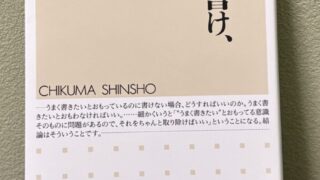 書け、
CHIKUMA SHINSHO
──うまく書きたいとおもっているのに書けない場合、どうすればいいのか。うまく書
きたいとおもわなければいい。……細かくいうと「“うまく書きたい”とおもってる意識
そのものに問題があるので、それをちゃんと取り除けばいい」ということになる。結
論はそういうことです。